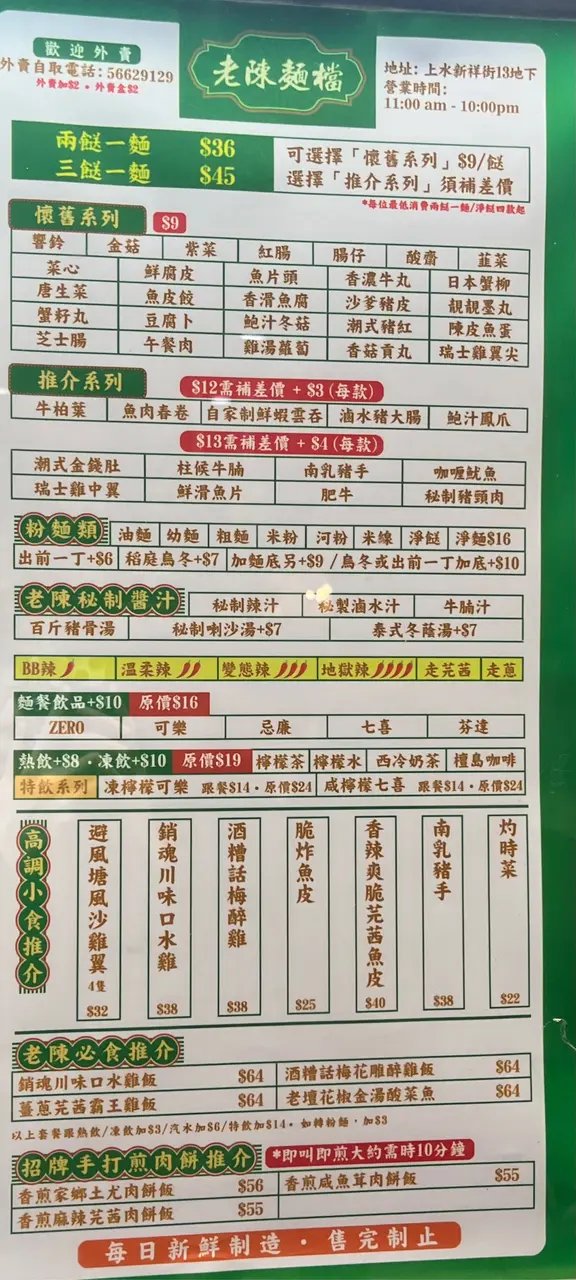 歡迎外賣
外賣自取電話：56629129
外賣加$2・外賣盒$2
老陳麵檔
地址：上水新祥街13地下
營業時間：
11:00 am - 10:00pm
兩餸一麵 $36
三餸一麵 $45
可選擇「懷舊系列」$9/餸
選擇「推介系列」須補差價
*每位最低消費兩餸一麵/淨餸四款起
懷舊系列 $9
響鈴 金菇 紫菜 紅腸 腸仔 酸齋 韮菜
菜心 鮮腐皮 魚片頭 香濃牛丸 日本蟹柳
唐生菜 魚皮餃 香滑魚腐 沙爹豬皮 靚靚墨丸
蟹籽丸 豆腐卜 鮑汁冬菇 潮式豬紅 陳皮魚蛋
芝士腸 午餐肉 雞湯蘿蔔 香菇貢丸 瑞士雞翼尖
推介系列 $12需補差價 + $3 (每款)
牛柏葉 魚肉春卷 自家制鮮蝦雲吞 滷水豬大腸 鮑汁鳳爪
$13需補差價 + $4 (每款)
潮式金錢肚 柱候牛腩 南乳豬手 咖喱魷魚
瑞士雞中翼 鮮滑魚片 肥牛 秘制豬頸肉
粉麵類 油麵 幼麵 粗麵 米粉 河粉 米線 淨餸 淨麵$16
出前一丁+$6 稻庭烏冬+$7 加麵底另+$9 / 烏冬或出前一丁加底+$10
老陳秘制醬汁 秘制辣汁 秘製滷水汁 牛腩汁
百斤豬骨湯 秘制喇沙湯+$7 泰式冬蔭湯+$7
BB辣 溫柔辣 變態辣 地獄辣 走芫茜 走蔥
麵餐飲品+$10 原價$16
ZERO 可樂 忌廉 七喜 芬達
熱飲+$8・凍飲+$10 原價$19 檸檬茶 檸檬水 西冷奶茶 檀島咖啡
特飲系列 凍檸檬可樂 跟餐$14・原價$24 咸檸檬七喜 跟餐$14・原價$24
高調小食推介
避風塘風沙雞翼 4隻 $32
銷魂川味口水雞 $38
酒糟話梅醉雞 $38
脆炸魚皮 $25
香辣爽脆芫茜魚皮 $40
南乳豬手 $38
灼時菜 $22
老陳必食推介
銷魂川味口水雞飯 $64 酒糟話梅花雕醉雞飯 $64
薑蔥芫茜霸王雞飯 $64 老壇花椒金湯酸菜魚 $64
以上套餐跟熱飲/凍飲加$3/汽水加$6/特飲加$14・如轉粉麵，加$3
招牌手打煎肉餅推介 *即叫即煎大約需時10分鐘
香煎家鄉土尤肉餅飯 $56 香煎咸魚茸肉餅飯 $55
香煎麻辣芫茜肉餅飯 $55
每日新鮮制造・售完制止